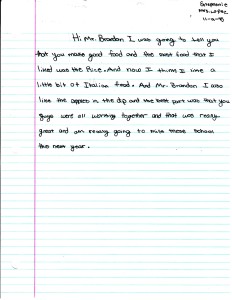 Stephanie
Mrs. Lopez
Hi Mr. Brandon I was going to tell you
that you made good food and the best food that I
liked was the Rice. And now I think I like a
little bit of Italian food. And Mr. Brandon I also
like the apples in the dip and the best part was that you
guys were all working together and that was really
great and am really going to miss these school
the next year.